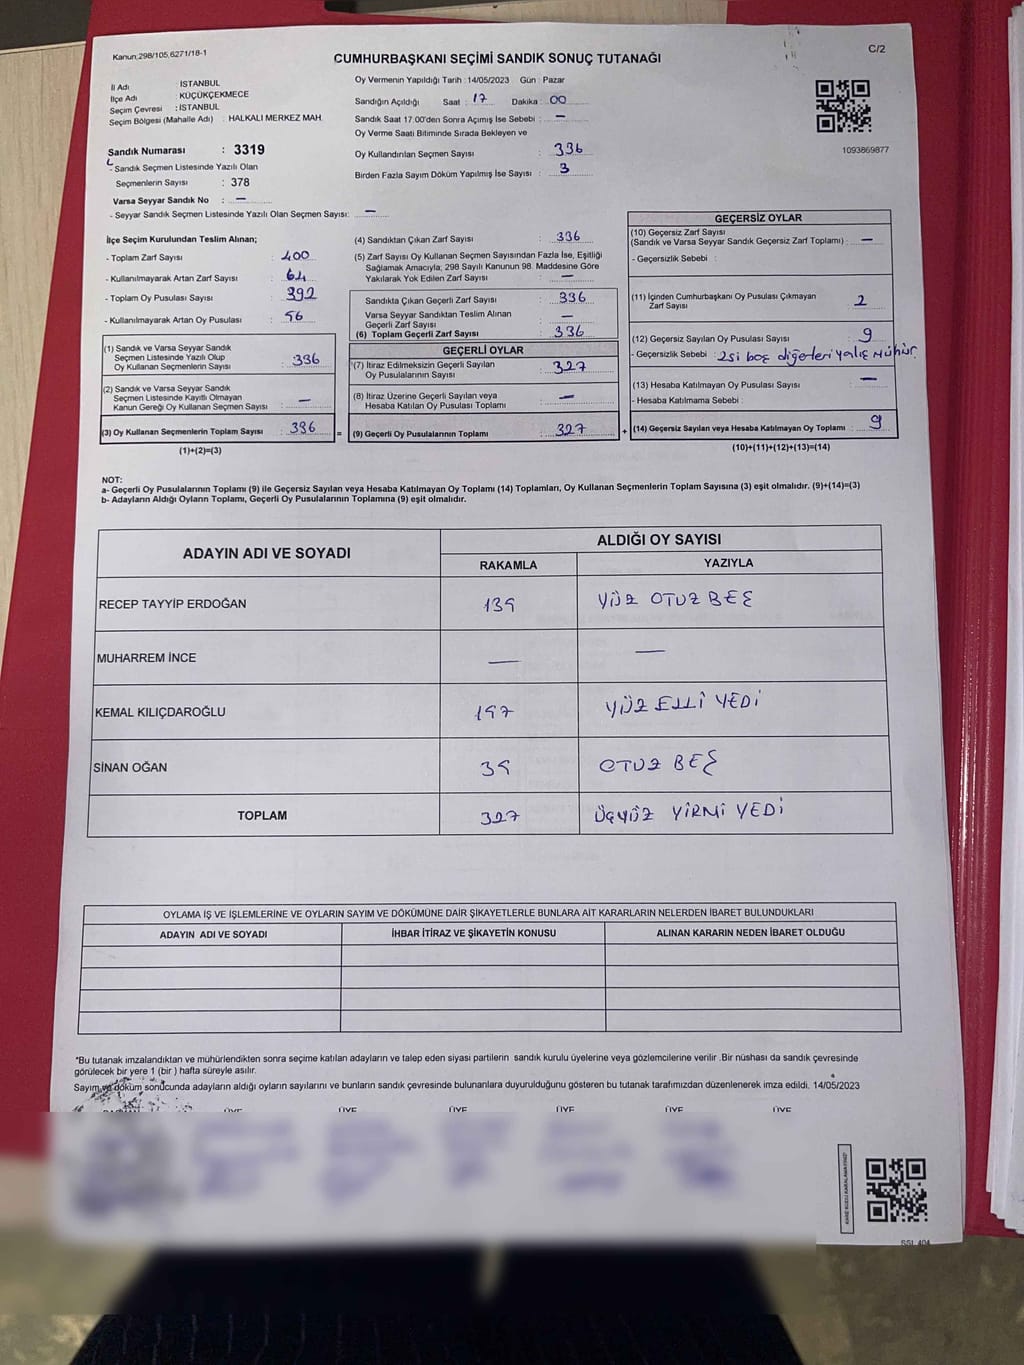 Kanun;298/105,6271/18-1
C/2
CUMHURBAŞKANI SEÇİMİ SANDIK SONUÇ TUTANAĞI
İl Adı : İSTANBUL
İlçe Adı : KÜÇÜKÇEKMECE
Seçim Çevresi : İSTANBUL
Seçim Bölgesi (Mahalle Adı) : HALKALI MERKEZ MAH.
Sandık Numarası : 3319
- Sandık Seçmen Listesinde Yazılı Olan
Seçmenlerin Sayısı : 378
Varsa Seyyar Sandık No : —
- Seyyar Sandık Seçmen Listesinde Yazılı Olan Seçmen Sayısı: —
Oy Vermenin Yapıldığı Tarih : 14/05/2023 Gün : Pazar
Sandığın Açıldığı Saat : 17 Dakika : 00
Sandık Saat 17:00'den Sonra Açımış İse Sebebi : —
Oy Verme Saati Bitiminde Sırada Bekleyen ve
Oy Kullandırılan Seçmen Sayısı : 336
Birden Fazla Sayım Döküm Yapılmış İse Sayısı : 3
1093869877
İlçe Seçim Kurulundan Teslim Alınan;
- Toplam Zarf Sayısı : 400
- Kullanılmayarak Artan Zarf Sayısı : 64
- Toplam Oy Pusulası Sayısı : 392
- Kullanılmayarak Artan Oy Pusulası : 56
(1) Sandık ve Varsa Seyyar Sandık
Seçmen Listesinde Yazılı Olup
Oy Kullanan Seçmenlerin Sayısı : 336
(2) Sandık ve Varsa Seyyar Sandık
Seçmen Listesinde Kayıtlı Olmayan
Kanun Gereği Oy Kullanan Seçmen Sayısı : —
(3) Oy Kullanan Seçmenlerin Toplam Sayısı : 336
(1)+(2)=(3)
(4) Sandıktan Çıkan Zarf Sayısı : 336
(5) Zarf Sayısı Oy Kullanan Seçmen Sayısından Fazla İse, Eşitliği
Sağlamak Amacıyla; 298 Sayılı Kanunun 98. Maddesine Göre
Yakılarak Yok Edilen Zarf Sayısı : —
Sandıkta Çıkan Geçerli Zarf Sayısı : 336
Varsa Seyyar Sandıktan Teslim Alınan
Geçerli Zarf Sayısı : —
(6) Toplam Geçerli Zarf Sayısı : 336
GEÇERLİ OYLAR
(7) İtiraz Edilmeksizin Geçerli Sayılan
Oy Pusulalarının Sayısı : 327
(8) İtiraz Üzerine Geçerli Sayılan veya
Hesaba Katılan Oy Pusulası Toplamı : —
= (9) Geçerli Oy Pusulalarının Toplamı : 327
GEÇERSİZ OYLAR
(10) Geçersiz Zarf Sayısı
(Sandık ve Varsa Seyyar Sandık Geçersiz Zarf Toplamı) : —
- Geçersizlik Sebebi :
(11) İçinden Cumhurbaşkanı Oy Pusulası Çıkmayan
Zarf Sayısı : 2
(12) Geçersiz Sayılan Oy Pusulası Sayısı : 9
- Geçersizlik Sebebi : 2si boş diğerleri yalış mühür
(13) Hesaba Katılmayan Oy Pusulası Sayısı : —
- Hesaba Katılmama Sebebi :
+ (14) Geçersiz Sayılan veya Hesaba Katılmayan Oy Toplamı : 9
(10)+(11)+(12)+(13)=(14)
NOT:
a- Geçerli Oy Pusulalarının Toplamı (9) ile Geçersiz Sayılan veya Hesaba Katılmayan Oy Toplamı (14) Toplamları, Oy Kullanan Seçmenlerin Toplam Sayısına (3) eşit olmalıdır. (9)+(14)=(3)
b- Adayların Aldığı Oyların Toplamı, Geçerli Oy Pusulalarının Toplamına (9) eşit olmalıdır.
ADAYIN ADI VE SOYADI
ALDIĞI OY SAYISI
RAKAMLA YAZIYLA
RECEP TAYYİP ERDOĞAN 135 YÜZ OTUZ BEŞ
MUHARREM İNCE — —
KEMAL KILIÇDAROĞLU 157 YÜZ ELLİ YEDİ
SİNAN OĞAN 35 OTUZ BEŞ
TOPLAM 327 ÜÇYÜZ YİRMİ YEDİ
OYLAMA İŞ VE İŞLEMLERİNE VE OYLARIN SAYIM VE DÖKÜMÜNE DAİR ŞİKAYETLERLE BUNLARA AİT KARARLARIN NELERDEN İBARET BULUNDUKLARI
ADAYIN ADI VE SOYADI İHBAR İTİRAZ VE ŞİKAYETİN KONUSU ALINAN KARARIN NEDEN İBARET OLDUĞU
*Bu tutanak imzalandıktan ve mühürlendikten sonra seçime katılan adayların ve talep eden siyasi partilerin sandık kurulu üyelerine veya gözlemcilerine verilir .Bir nüshası da sandık çevresinde
görülecek bir yere 1 (bir ) hafta süreyle asılır.
Sayım ve döküm sonucunda adayların aldığı oyların sayılarını ve bunların sandık çevresinde bulunanlara duyurulduğunu gösteren bu tutanak tarafımızdan düzenlenerek imza edildi. 14/05/2023
ÜYE ÜYE ÜYE ÜYE ÜYE ÜYE
KARE KODU KARALAMAYINIZ!